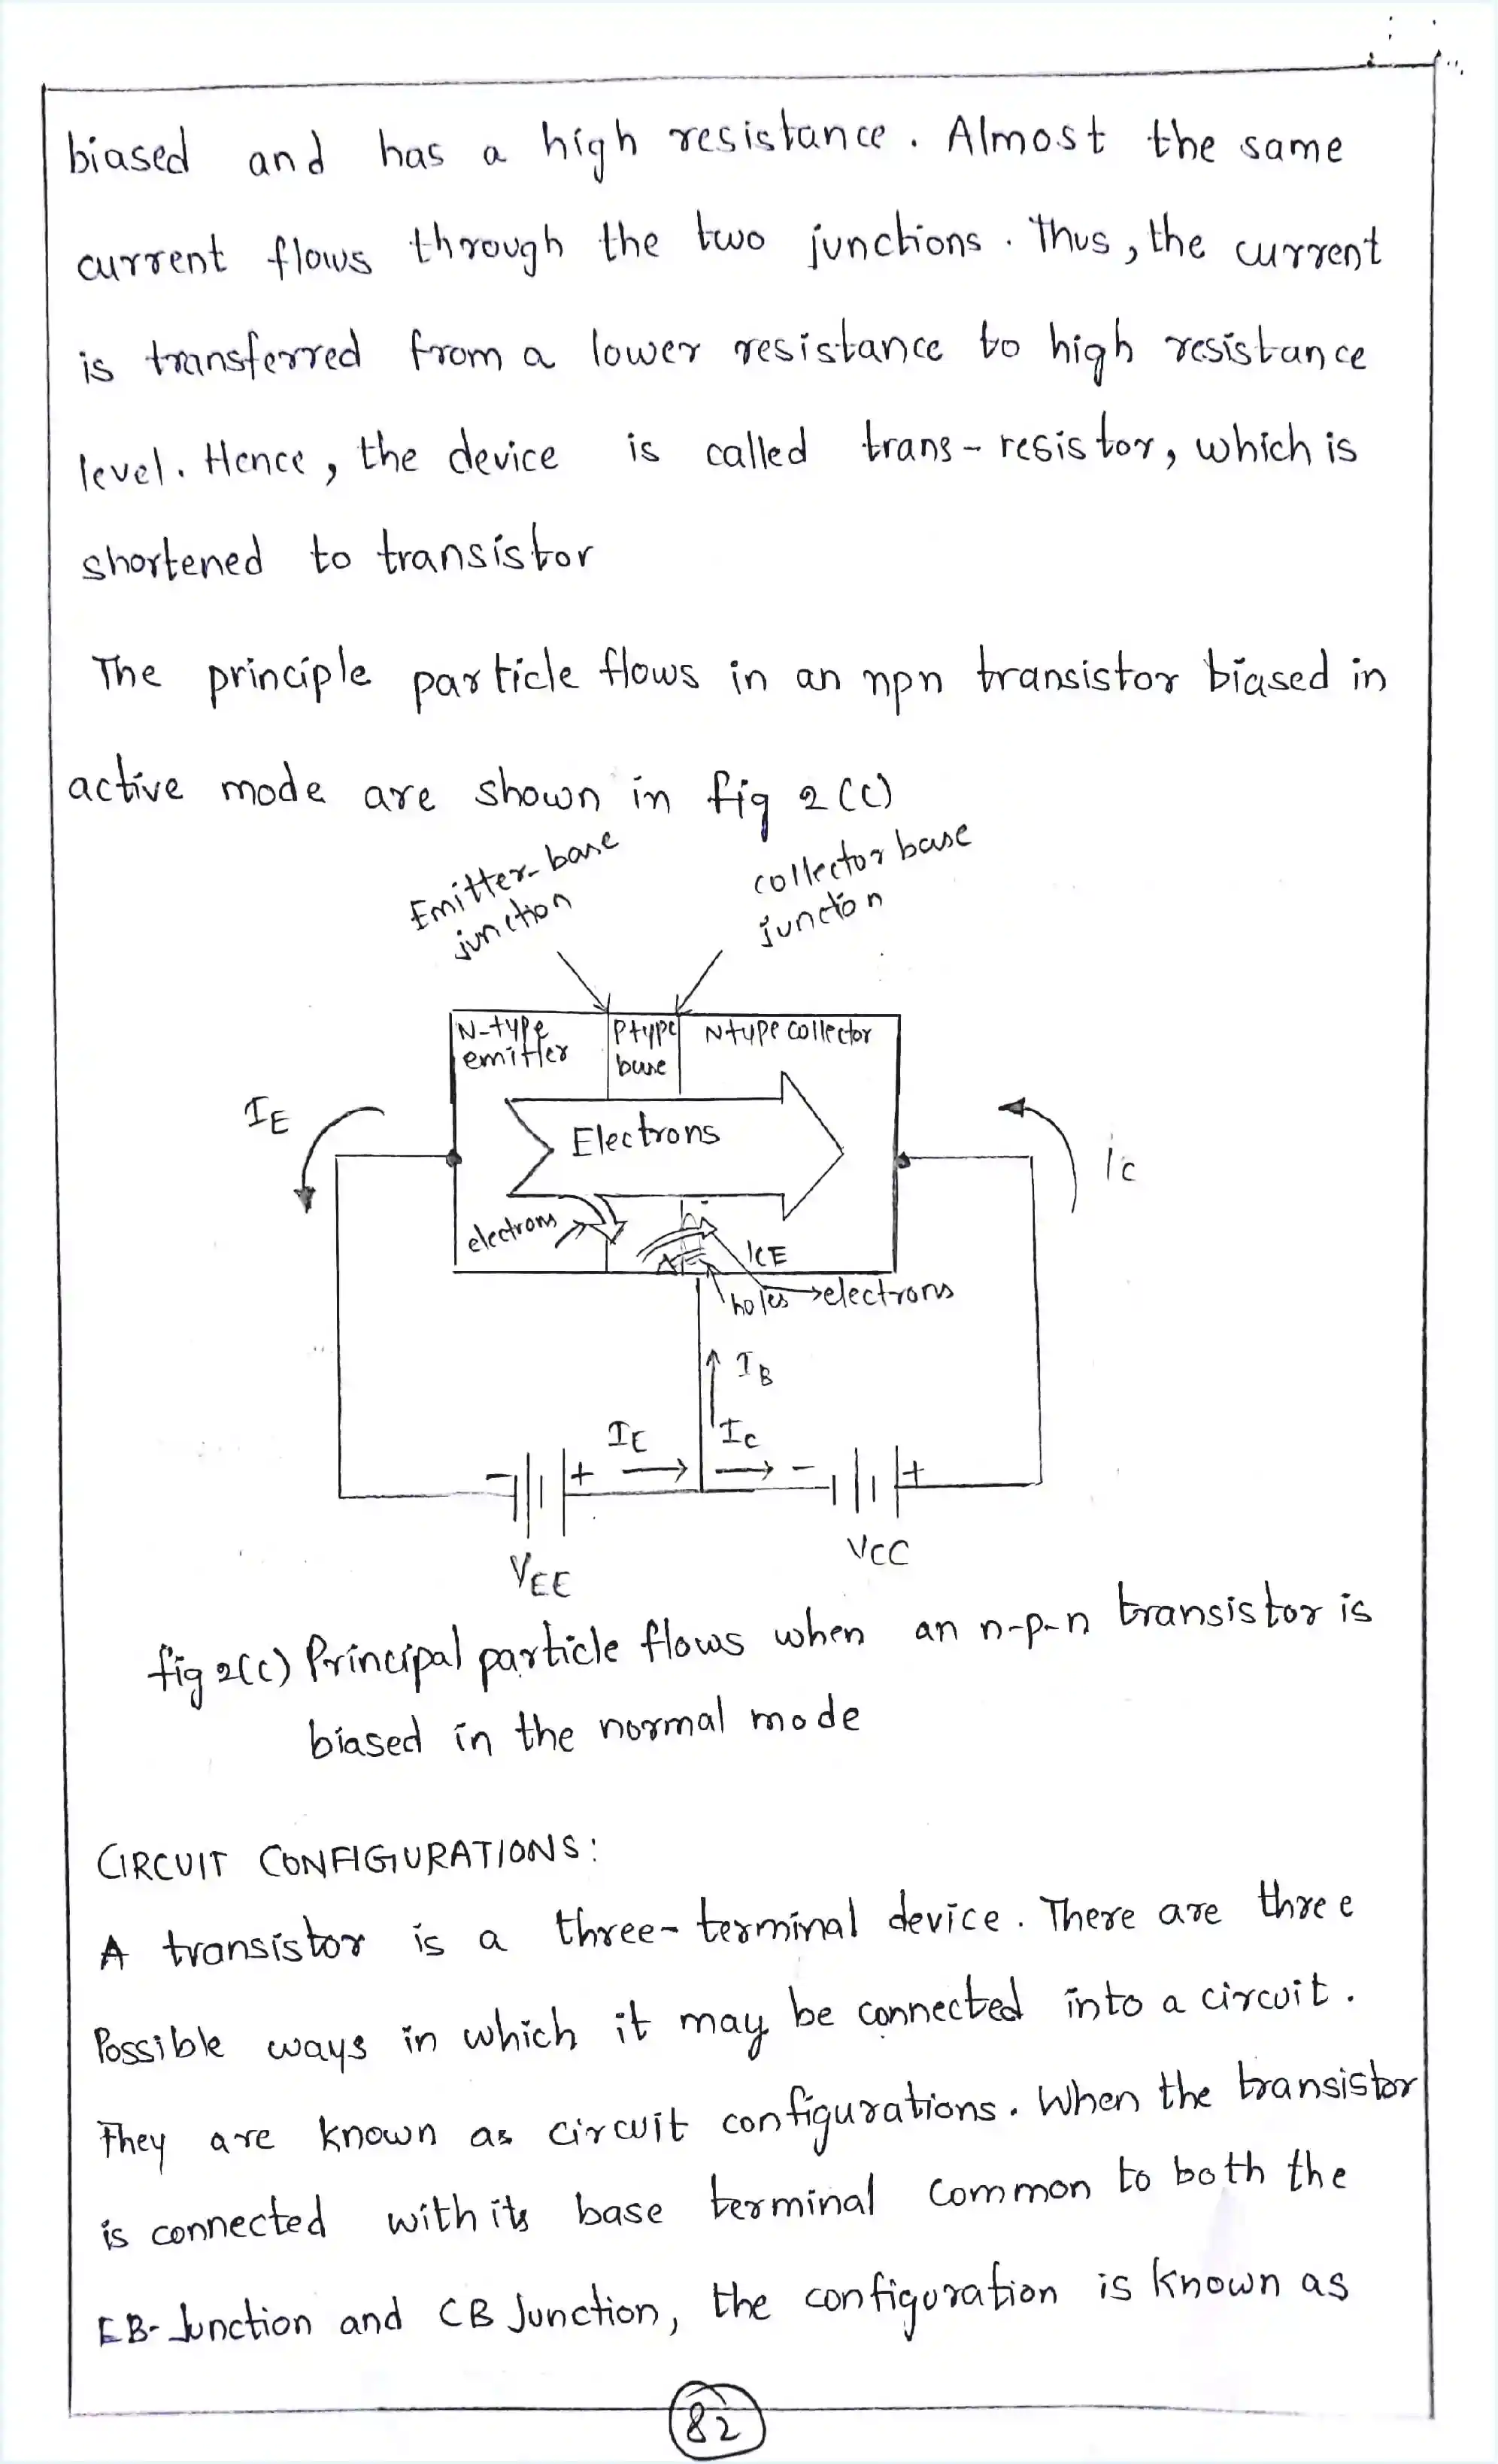 biased and has a high resistance. Almost the same
current flows through the two junctions. Thus, the current
is transferred from a lower resistance to high resistance
level. Hence, the device is called trans-resistor, which is
shortened to transistor
The principle particle flows in an npn transistor biased in
active mode are shown in fig 2(c)
Emitter-base
junction
collector base
junction
N-type
emitter
Ptype
base
Ntype collector
IE
Electrons
Ic
electrons
ICE
holes
electrons
IB
IE
Ic
- + - +
VEE
VCC
fig 2(c) Principal particle flows when an n-p-n transistor is
biased in the normal mode
CIRCUIT CONFIGURATIONS:
A transistor is a three-terminal device. There are three
Possible ways in which it may be connected into a circuit.
They are known as circuit configurations. When the transistor
is connected with its base terminal common to both the
EB-Junction and CB Junction, the configuration is known as
82